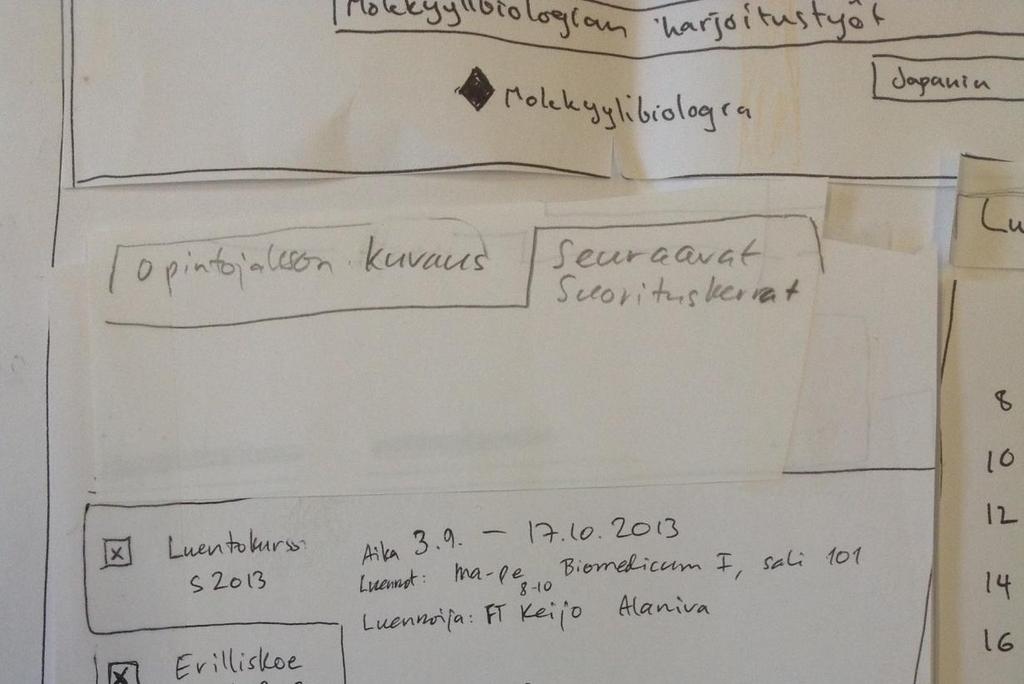 Molekyylibiologian harjoitustyöt
Molekyylibiologia
Japanin
Lu
Opintojakson kuvaus
Seuraavat
Suorituskerrat
8
10
12
14
16
Luentokurssi
S 2013
Aika 3.9. — 17.10. 2013
Luennot: ma-pe 8-10 Biomedicum I, sali 101
Luennoija: FT Keijo Alaniva
Erilliskoe